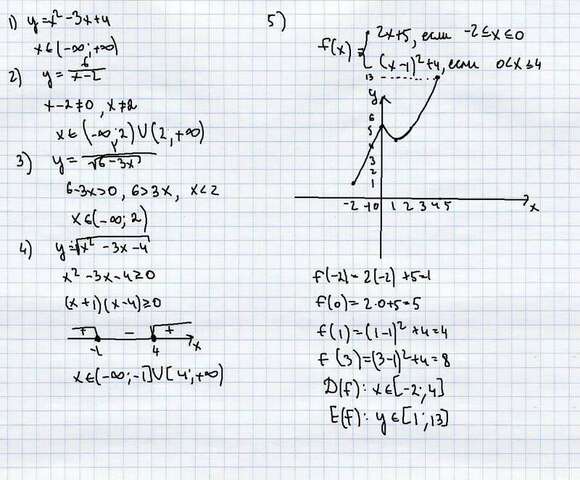 1) y = x² - 3x + 4
x ∈ (-∞; +∞)
2) y = 6/(x-2)
x - 2 ≠ 0, x ≠ 2
x ∈ (-∞; 2) ∪ (2, +∞)
3) y = 1/√(6-3x)
6-3x > 0, 6 > 3x, x < 2
x ∈ (-∞; 2)
4) y = √(x² - 3x - 4)
x² - 3x - 4 ≥ 0
(x+1)(x-4) ≥ 0
+ - +
-1 4 x
x ∈ (-∞; -1] ∪ [4; +∞)
5)
f(x) = { 2x+5, если -2 ≤ x ≤ 0
(x-1)² + 4, если 0 < x ≤ 4
13
y
6
5
4
3
2
1
-2 -1 0 1 2 3 4 5 x
f(-2) = 2(-2) + 5 = 1
f(0) = 2·0 + 5 = 5
f(1) = (1-1)² + 4 = 4
f(3) = (3-1)² + 4 = 8
D(f): x ∈ [-2; 4]
E(f): y ∈ [1; 13]